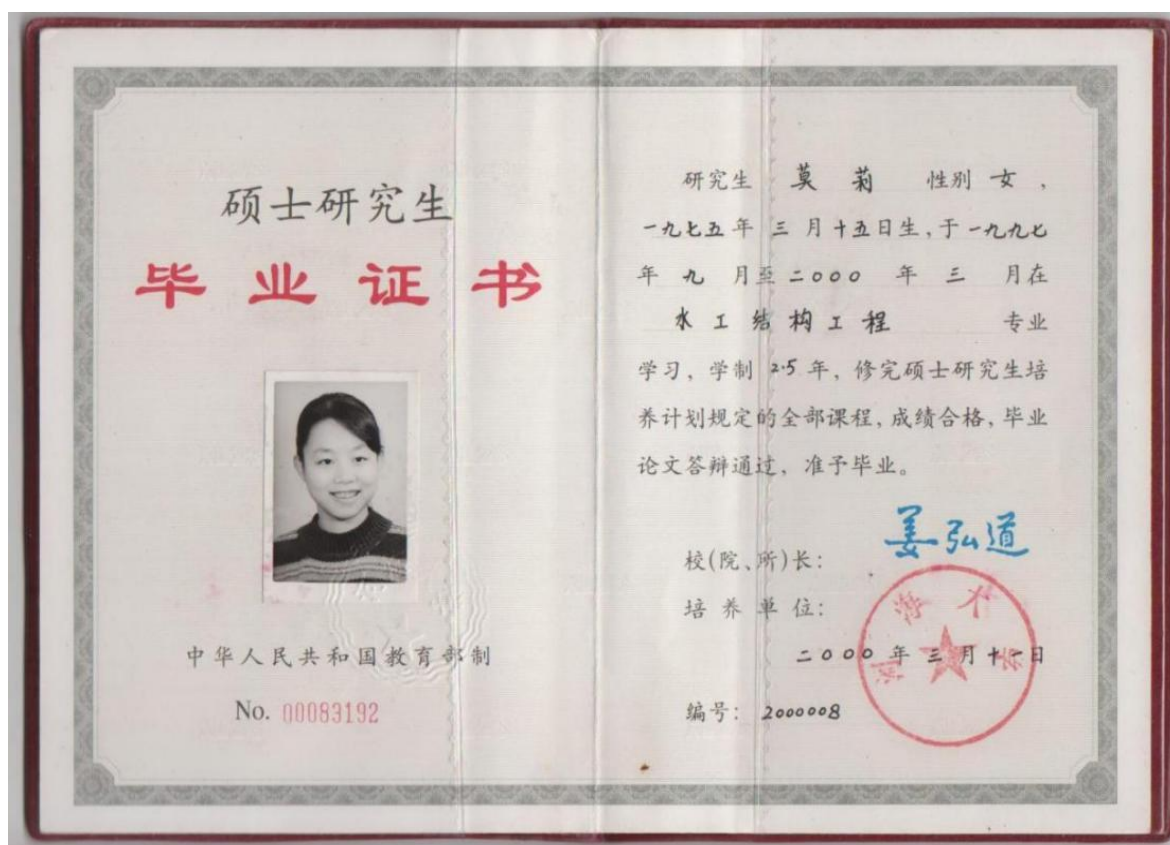 硕士研究生
毕业证书
中华人民共和国教育部制
No. 00083192
研究生 莫莉 性别 女，
一九七五年 三 月十五日生，于一九九七
年 九 月至二000 年 三 月在
水工结构工程 专业
学习，学制 2.5 年，修完硕士研究生培
养计划规定的全部课程，成绩合格，毕业
论文答辩通过，准予毕业。
姜弘道
校(院、所)长：
培养单位：
河海大学
二000年三月十一日
编号：2000008